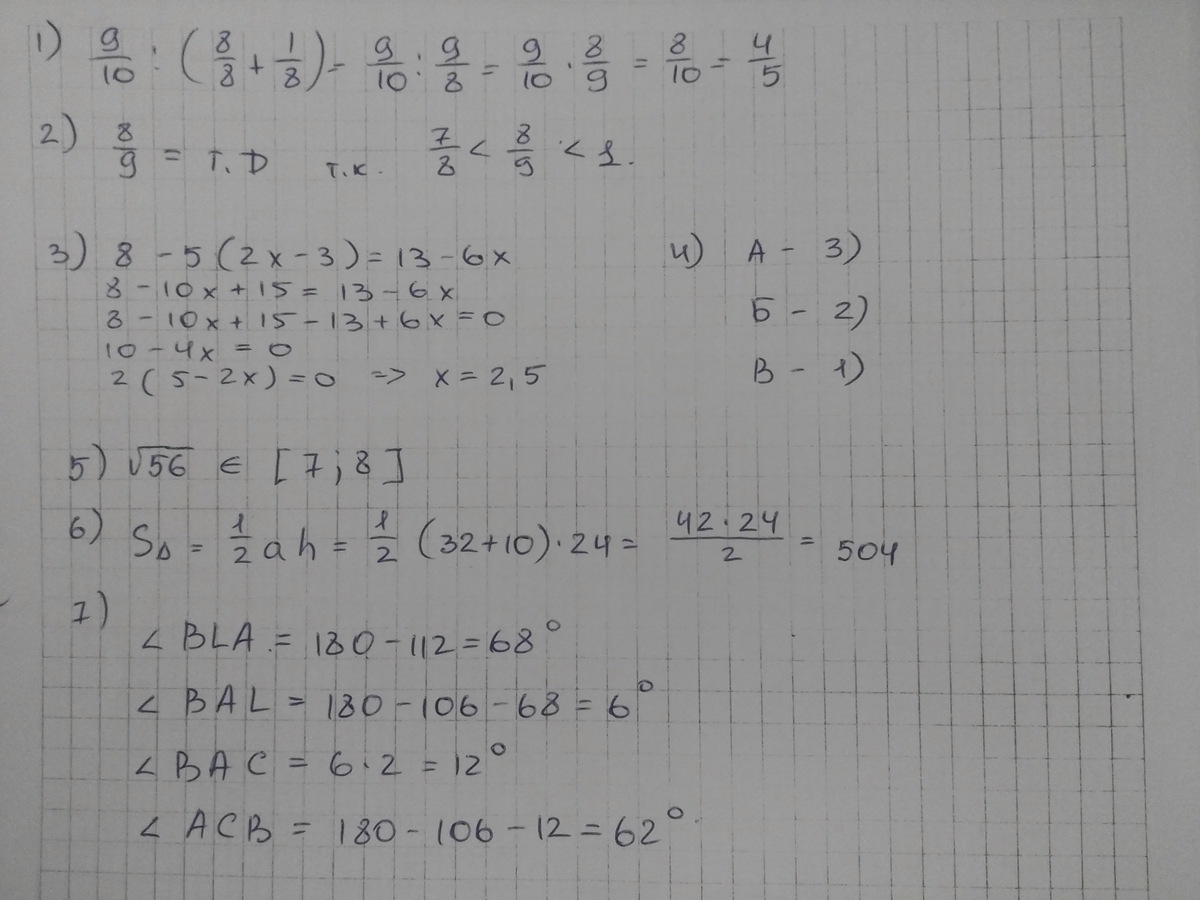 1) 9/10 : (8/8 + 1/8) - 9/10 : 9/8 = 9/10 · 8/9 = 8/10 - 4/5
2) 8/9 = т. D т.к. 7/8 < 8/9 < 1.
3) 8 - 5(2x - 3) = 13 - 6x
8 - 10x + 15 = 13 - 6x
8 - 10x + 15 - 13 + 6x = 0
10 - 4x = 0
2(5 - 2x) = 0 => x = 2,5
4) А - 3)
Б - 2)
В - 1)
5) √56 ∈ [7; 8]
6) S△ = 1/2 a h = 1/2 (32+10) · 24 = 42 · 24/2 = 504
7)
∠ BLA = 180 - 112 = 68°
∠ BAL = 180 - 106 - 68 = 6°
∠ BAC = 6 · 2 = 12°
∠ ACB = 180 - 106 - 12 = 62°.